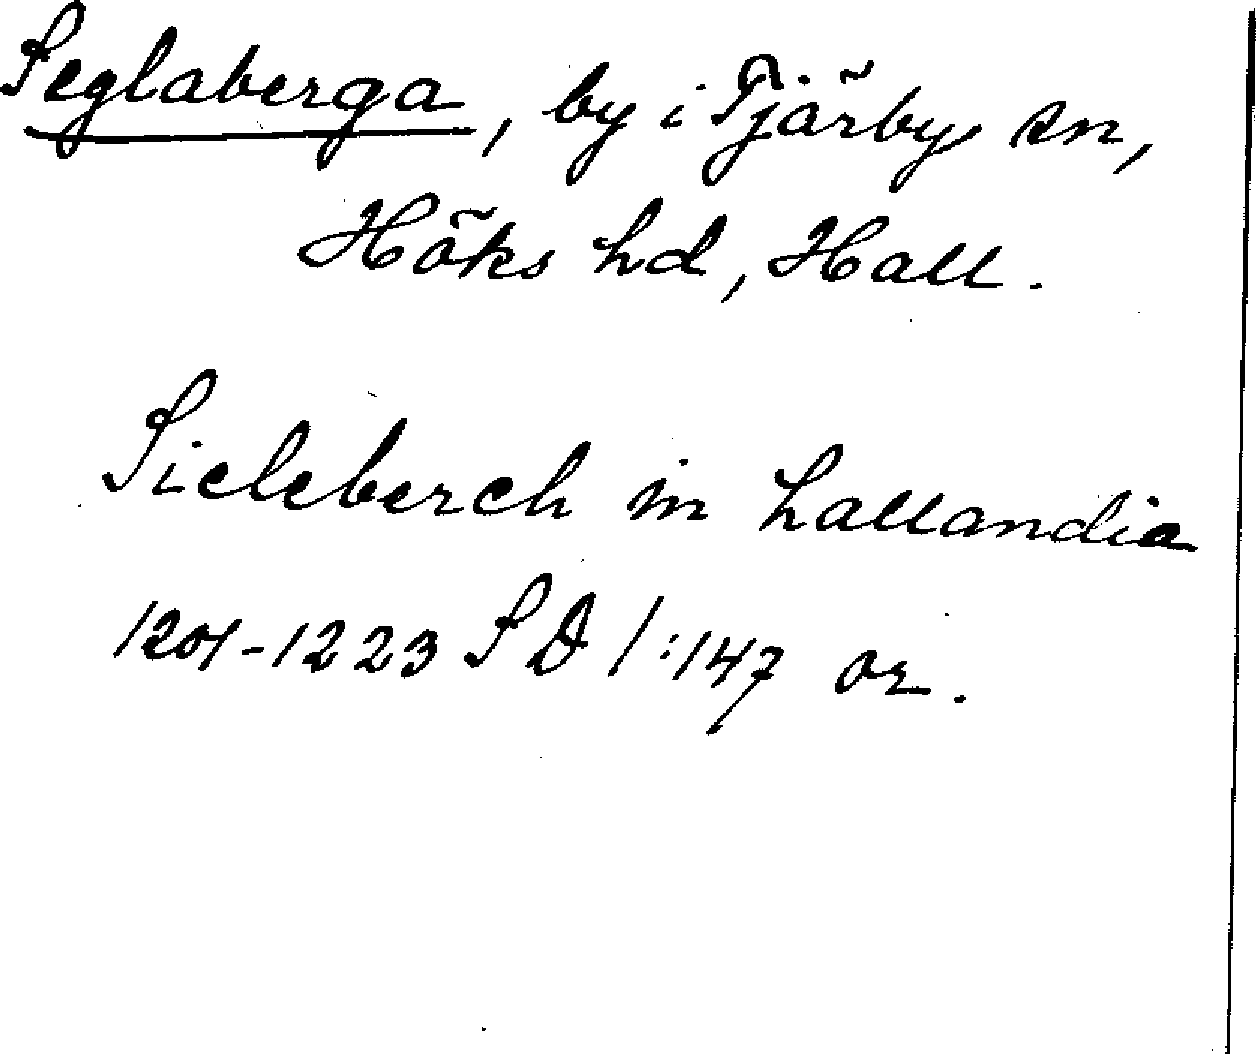 Seglaberga, by i Tjärby sn,
Höks hd, Hall.
Sieleberch in hallandia
1201-1223 SD 1:147 or.